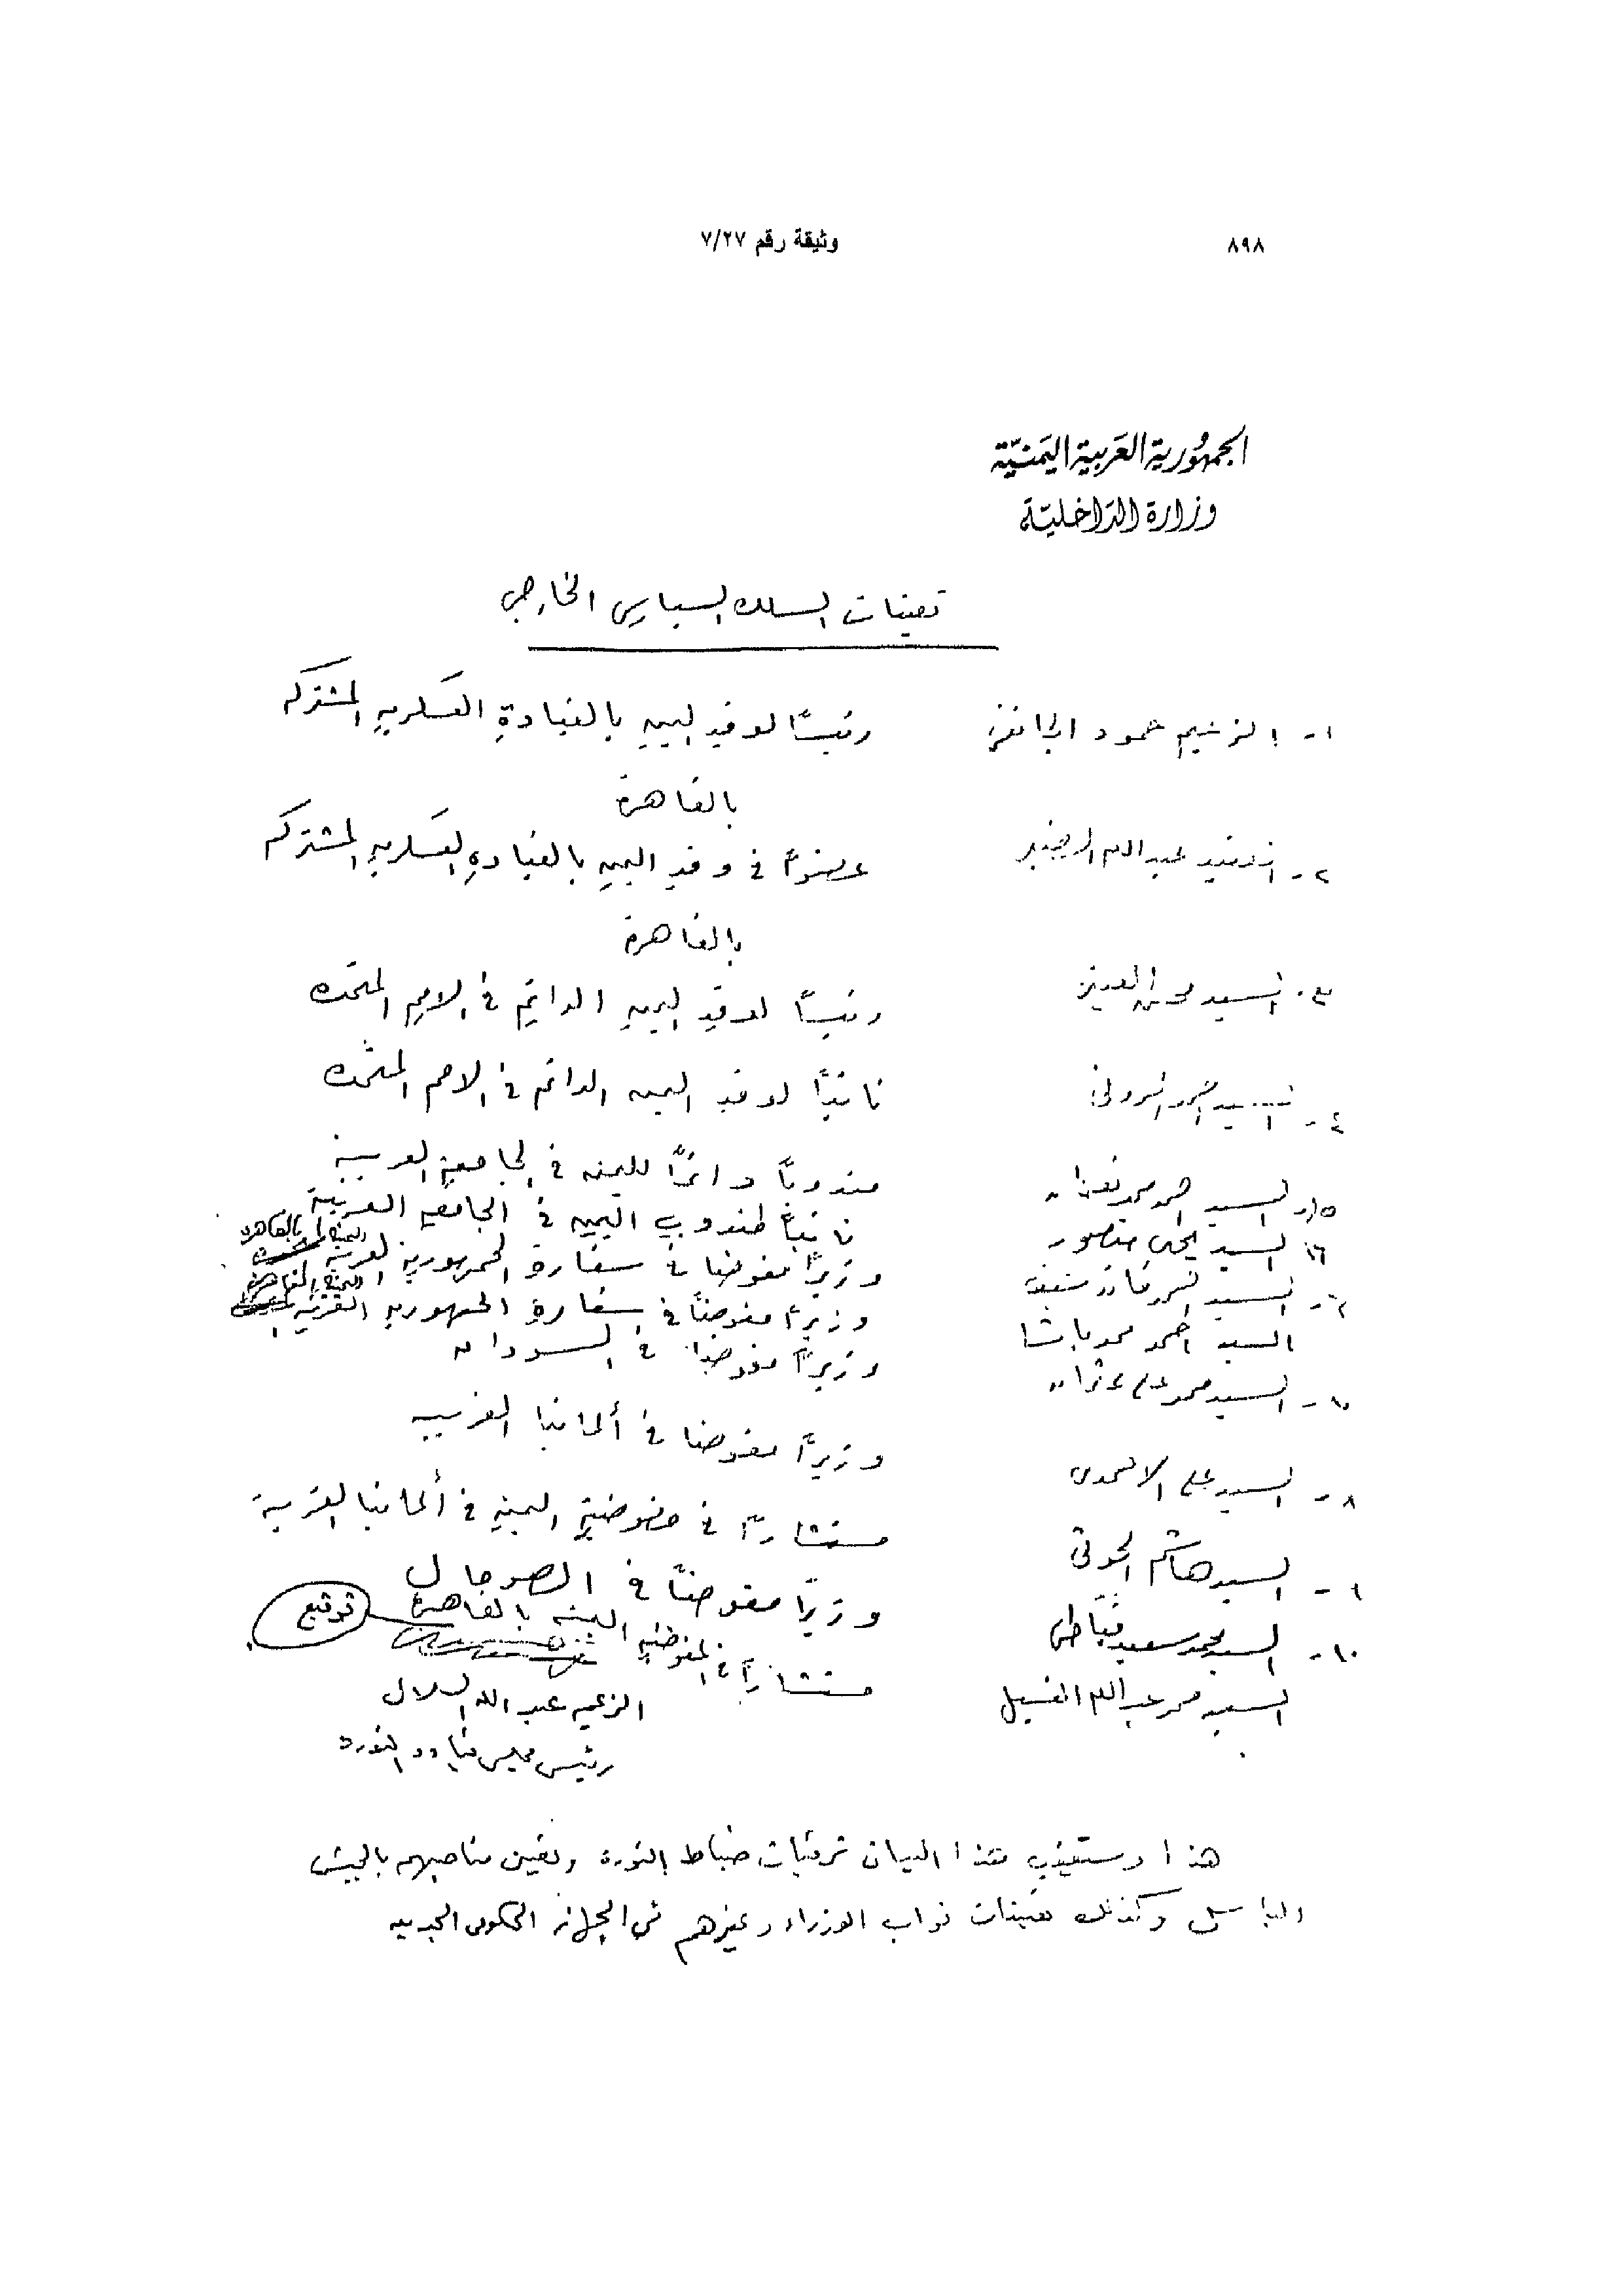 ٨٩٨
وثيقة رقم ٧/٢٧
الجمهورية العربية اليمنية
وزارة الداخلية
تعينات السلك السياسي الخارجي
١- الزعيم حمود الجائفي رئيسًا لوفد اليمن بالقيادة العسكرية المشتركة
بالقاهرة
٢- عبدالله الضبي عضوًا في وفد اليمن بالقيادة العسكرية المشتركة
بالقاهرة
٣- السيد محسن العيني رئيسًا لوفد اليمن الدائم في الامم المتحده
٤- السيد نائبًا لوفد اليمن الدائم في الامم المتحده
٥- السيد احمد محمد نعمان مندوبًا دائمًا لليمن في الجامعة العربية
٦- السيد يحيى منصور نائبًا لمندوب اليمن في الجامعة العربية
السيد وزيرًا مفوضا في سفارة الجمهورية العربية اليمنية بالقاهره
السيد احمد محمد باشا وزيرًا مفوضًا في سفارة الجمهورية العربية اليمنية القاهرة
٧- السيد محمد علي عثمان وزيرًا مفوضًا في السودان
٨- السيد علي الاحمدي وزيرًا مفوضا في ألمانيا الغربيه
٩- السيد هاشم الحوثي مستشارًا في مفوضية اليمن في ألمانيا الغربية
١٠- السيد محمد سعيد قباطي وزيرًا مفوضًا في الصومال
السيد محمد عبدالله الفسيل مستشارًا في المفوضية اليمنيه بالقاهرة
توقيع
الزعيم عبدالله السلال
رئيس مجلس قيادة الثورة
هذا وستعقب هذا البيان ترقيات ضباط الثورة وتعين مناصبهم بالجيش
الباسل وكذلك تعينات نواب الوزراء وغيرهم في الجهاز الحكومي الجديد